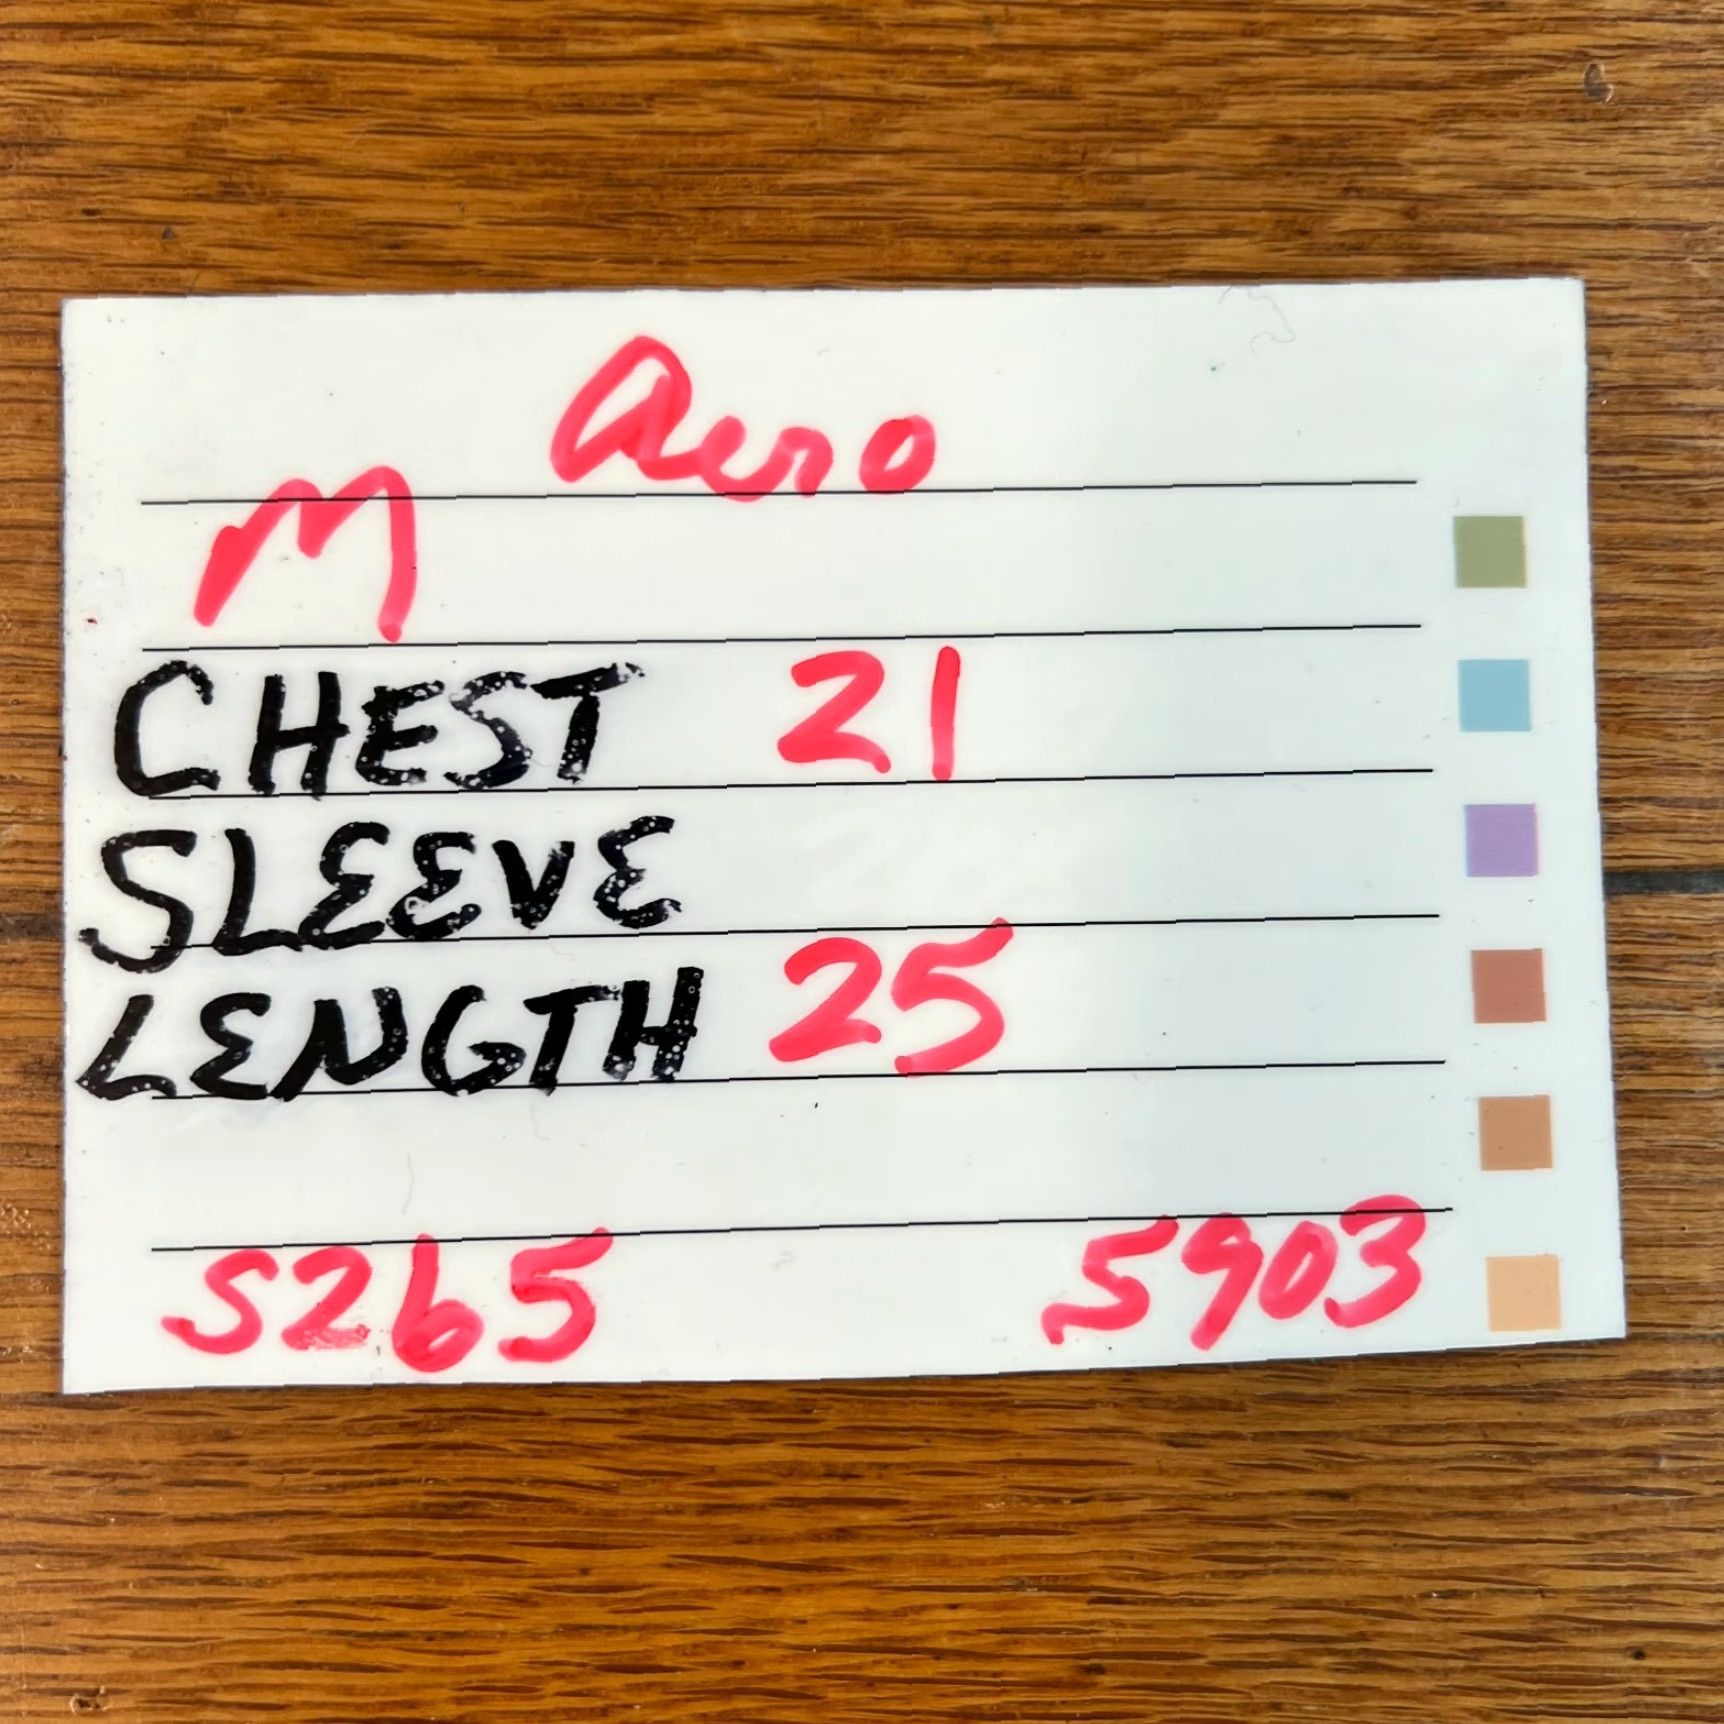 Aero
M
CHEST 21
SLEEVE
LENGTH 25
S265 5903